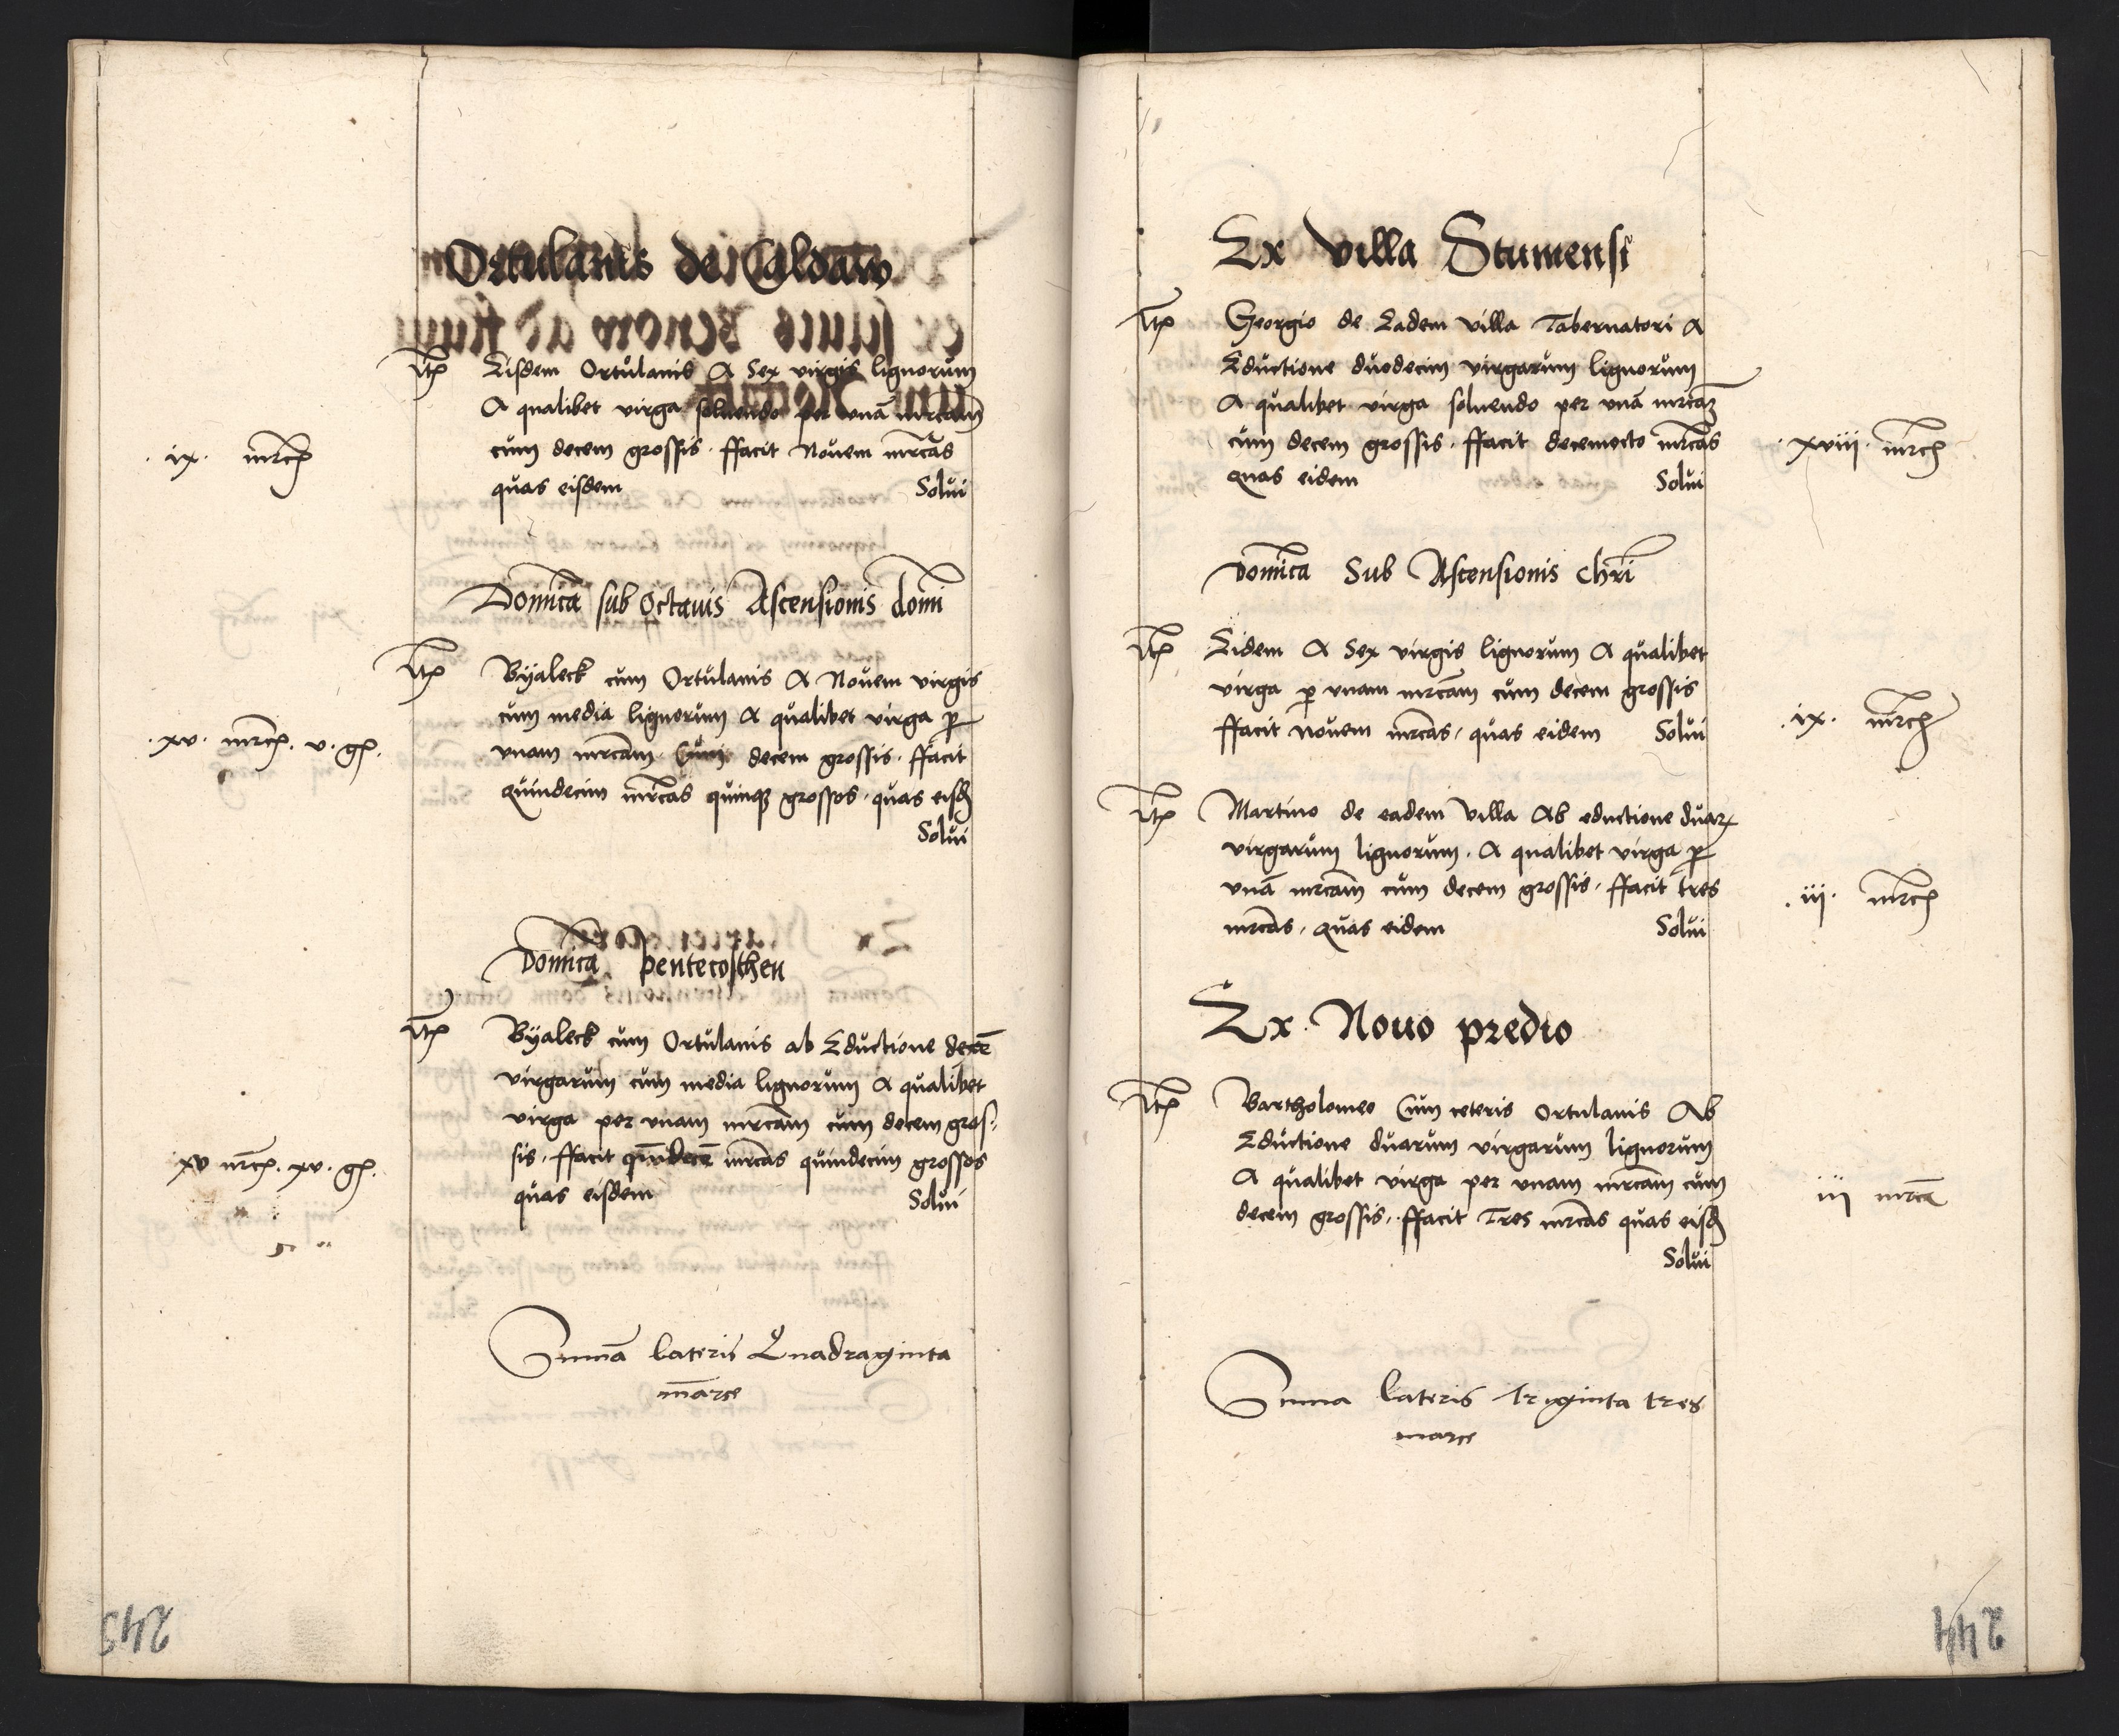 Ortulanis de Caldaw
Itm Eisdem Ortulanis A Sex virgis lignorum
A qualibet virga soluendo per vnā mrcam
cum decem grossis · ffacit Nouem mrcas
· ix · mrc
quas eisdem Solui
Domica sub Octauis Ascensionis domi
Itm Byaleck cum Ortulanis A Nouem virgis
cum media lignorum A qualibet virga p
· xv · mrc · v · g ·
vnam mrcam Cum decem grossis · ffacit
Quindecim mrcas quinq grossos · quas eisd
Solui
Domica pentecosthen
Itm Byaleck cum Ortulanis ab Eductione decē
virgarum cum media lignorum A qualibet
virga per vnam mrcam cum decem gros-
sis · ffacit quindecē mrcas quindecim grossos
xv mrc · xv · g ·
quas eisdem Solui
Summa lateris Quadraginta
marce
243
Ex villa Stumensi
Itm Georgio de Eadem villa Tabernatori A
Eductione duodecim virgarum lignorum
A qualibet virga soluendo per vnā mrcam
cum decem grossis · ffacit decemocto mrcas
· xviii · mrc
Quas eidem Solui
Domica Sub Ascensionis Chri
Itm Eidem A Sex virgis lignorum A qualibet
virga p vnam mrcam cum decem grossis
ffacit nouem mrcas, quas eidem Solui
· ix · mrc
Itm Martino de eadem villa Ab eductione duar
virgarum lignorum · A qualibet virga p
vnā mrcam cum decem grossis · ffacit tres
· iij · mrc
mrcas, Quas eidem Solui
Ex Nouo predio
Itm Bartholomeo Cum ceteris Ortulanis Ab
Eductione duarum virgarum lignorum
A qualibet virga per vnam mrcam cum
iij mrca
decem grossis, ffacit Tres mrcas quas eisd
Solui
Suma lateris triginta tres
marce
244